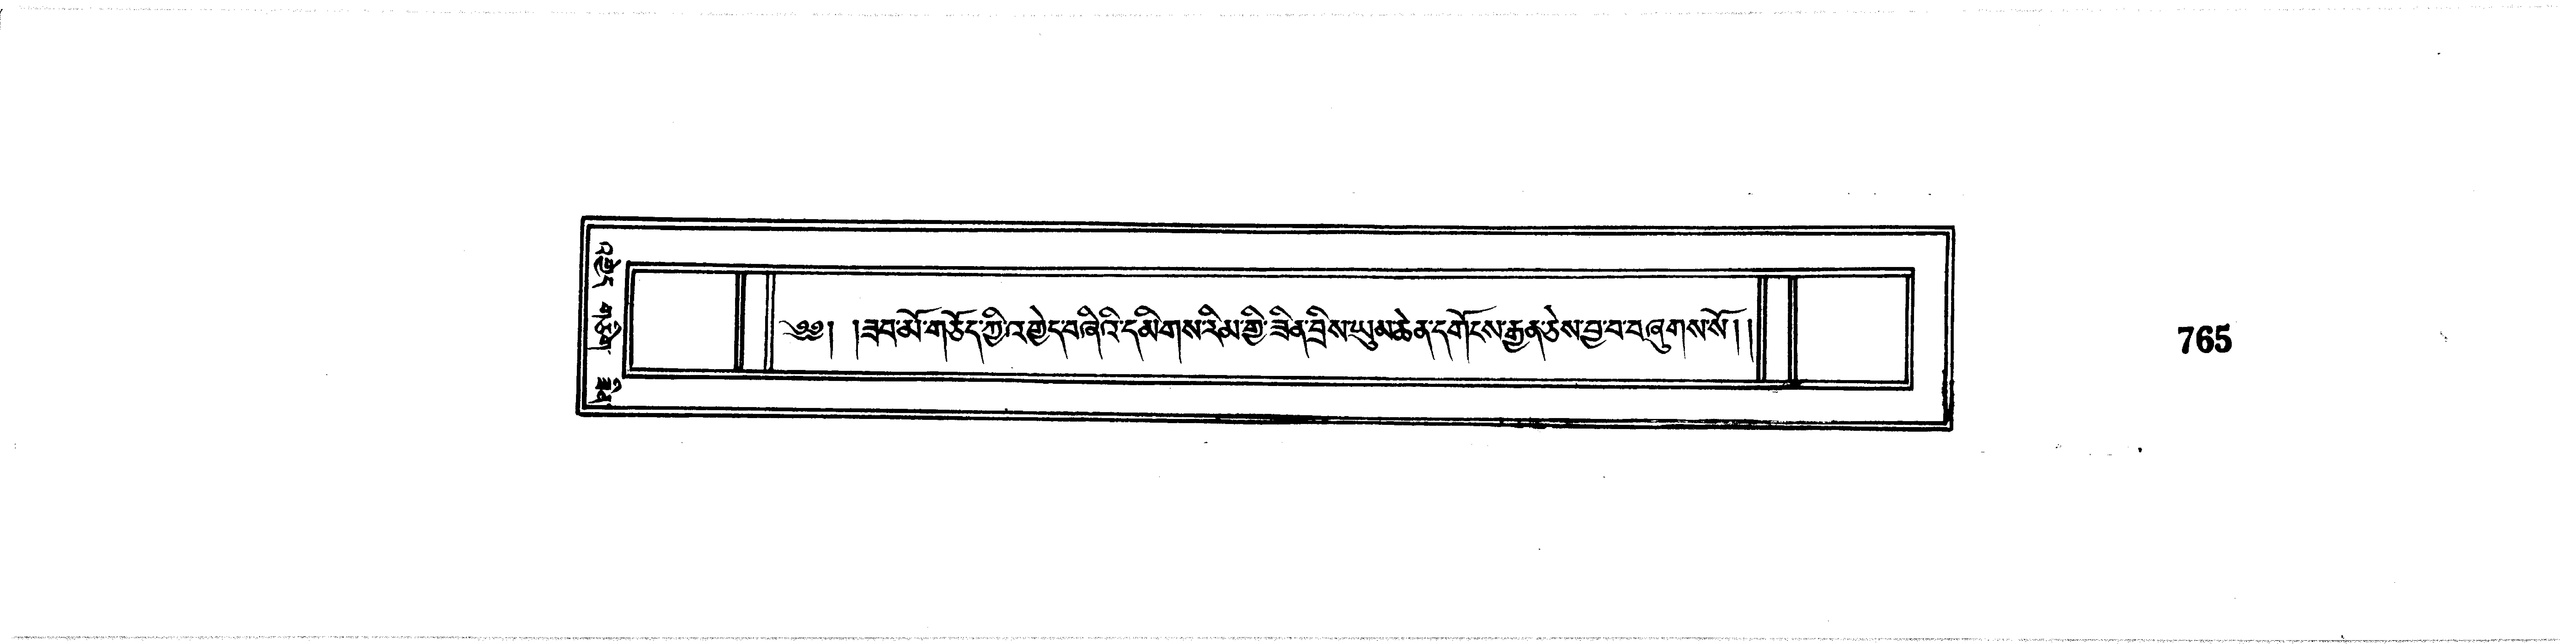 འགྱེད་ གཅིག་ ཟིན་
༄༅། །ཟབ་མོ་གཅོད་ཀྱི་འགྱེད་བཞིའི་དམིགས་རིམ་གྱི་ཟིན་བྲིས་ཡུམ་ཆེན་དགོངས་རྒྱན་ཅེས་བྱ་བ་བཞུགས་སོ། །
765